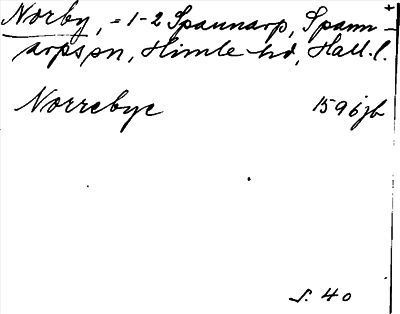 Norby, = 1-2 Spannarp, Spann-
arps sn, Himle hd, Hall. l.
Norrebye 1596 jb
s. 40